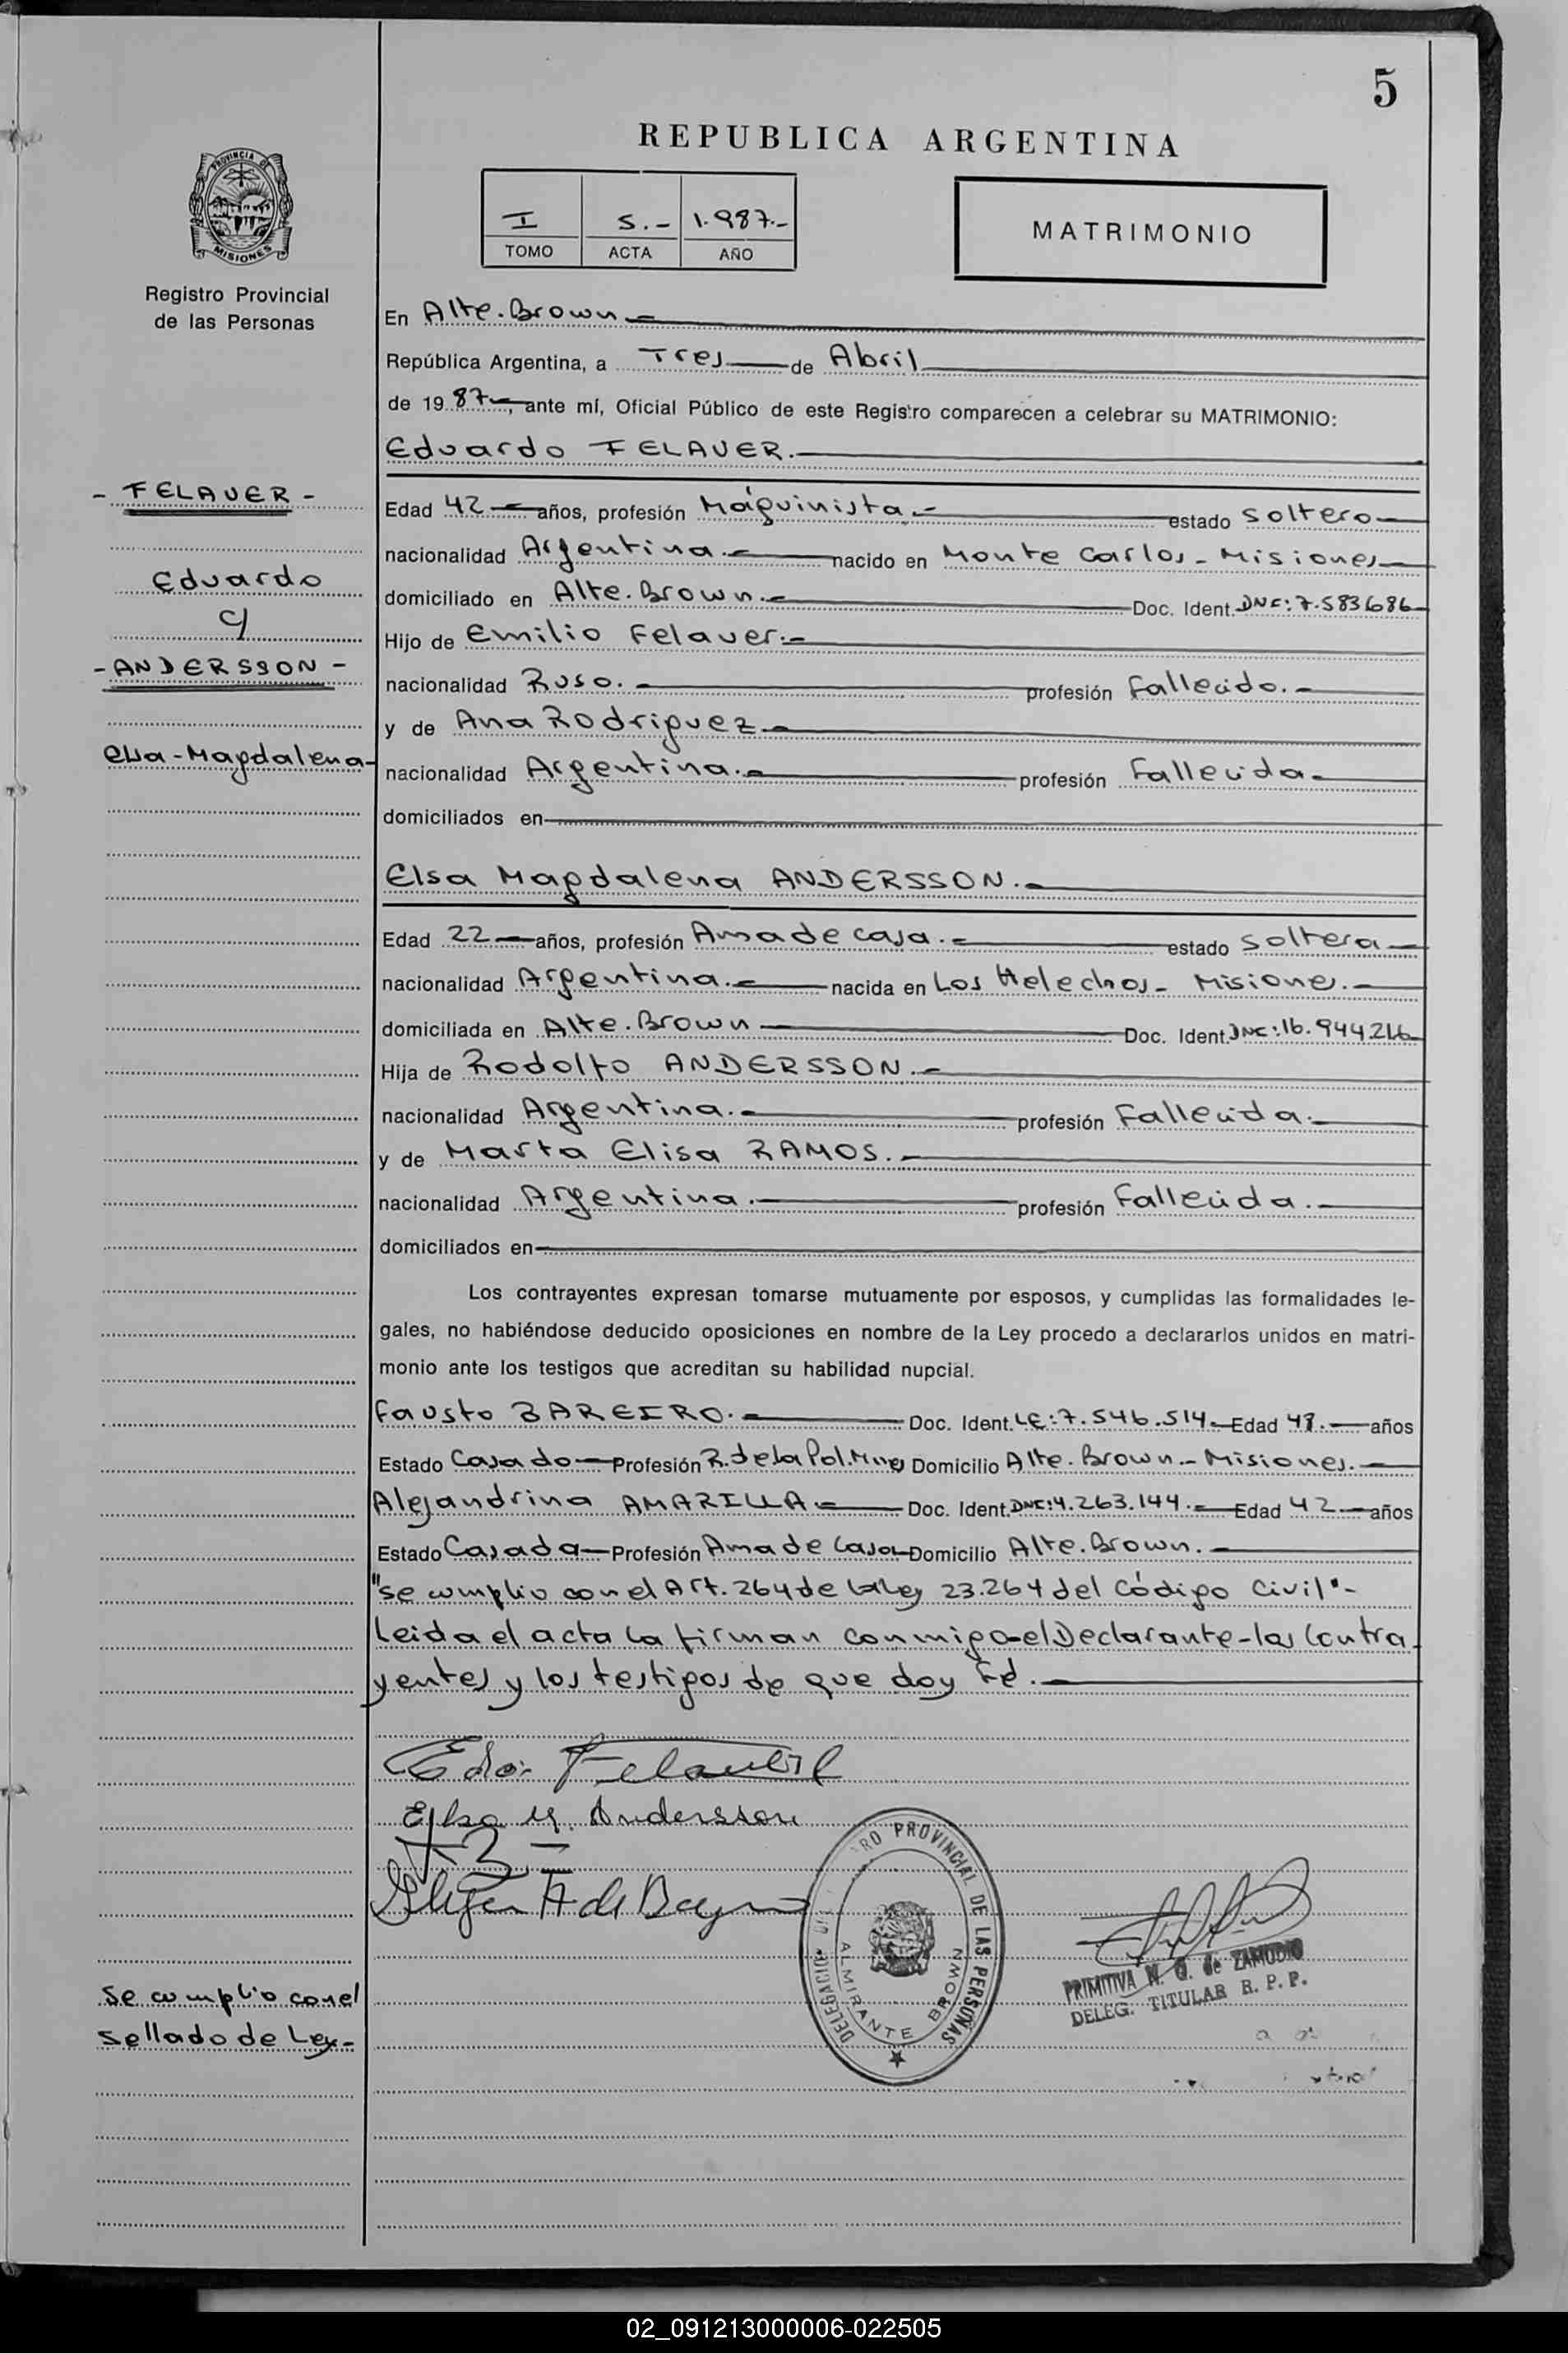 5
REPUBLICA ARGENTINA
PROVINCIA DE
MISIONES
I 5.- 1.987.-
TOMO ACTA AÑO
MATRIMONIO
Registro Provincial
de las Personas
En Alte. Brown.-
República Argentina, a Tres de Abril
de 19 87-, ante mí, Oficial Público de este Registro comparecen a celebrar su MATRIMONIO:
Eduardo FELAUER.
- FELAUER -
Eduardo
c/
- ANDERSSON -
Elsa - Magdalena -
Edad 42 años, profesión Máquinista.- estado Soltero
nacionalidad Argentina.- nacido en Monte Carlos - Misiones
domiciliado en Alte. Brown.- Doc. Ident. DNI: 7.583.686
Hijo de Emilio Felauer.-
nacionalidad Ruso.- profesión Fallecido.-
y de Ana Rodriguez
nacionalidad Argentina.- profesión Fallecida-
domiciliados en
Elsa Magdalena ANDERSSON.-
Edad 22 años, profesión Ama de casa.- estado Soltera
nacionalidad Argentina.- nacida en Los Helechos - Misiones.-
domiciliada en Alte. Brown Doc. Ident. DNI: 16.944.216
Hija de Rodolfo ANDERSSON.-
nacionalidad Argentina.- profesión Fallecida.-
y de Marta Elisa RAMOS.-
nacionalidad Argentina.- profesión Fallecida.-
domiciliados en
Los contrayentes expresan tomarse mutuamente por esposos, y cumplidas las formalidades le-
gales, no habiéndose deducido oposiciones en nombre de la Ley procedo a declararlos unidos en matri-
monio ante los testigos que acreditan su habilidad nupcial.
Fausto BAREIRO.- Doc. Ident. LE: 7.546.514.- Edad 48.- años
Estado Casado Profesión R. de la Pol. Mnes Domicilio Alte. Brown - Misiones.-
Alejandrina AMARILLA Doc. Ident. DNI: 4.263.144.- Edad 42 años
Estado Casada Profesión Ama de Casa Domicilio Alte. Brown.-
"se cumplio con el Art. 264 de la Ley 23.264 del Código Civil"-
Leida el acta la firman conmigo el Declarante - los Contra-
yentes y los testigos de que doy Fé.
Edo. Felauer
Elsa M. Andersson
A de
PROVINCIAL DE LAS PERSONAS
DELEGACION
ALMIRANTE BROWN
PRIMITIVA N. Q. de ZAMUDIO
DELEG. TITULAR R. P. P.
Se cumplio con el
sellado de Ley-
02_091213000006-022505